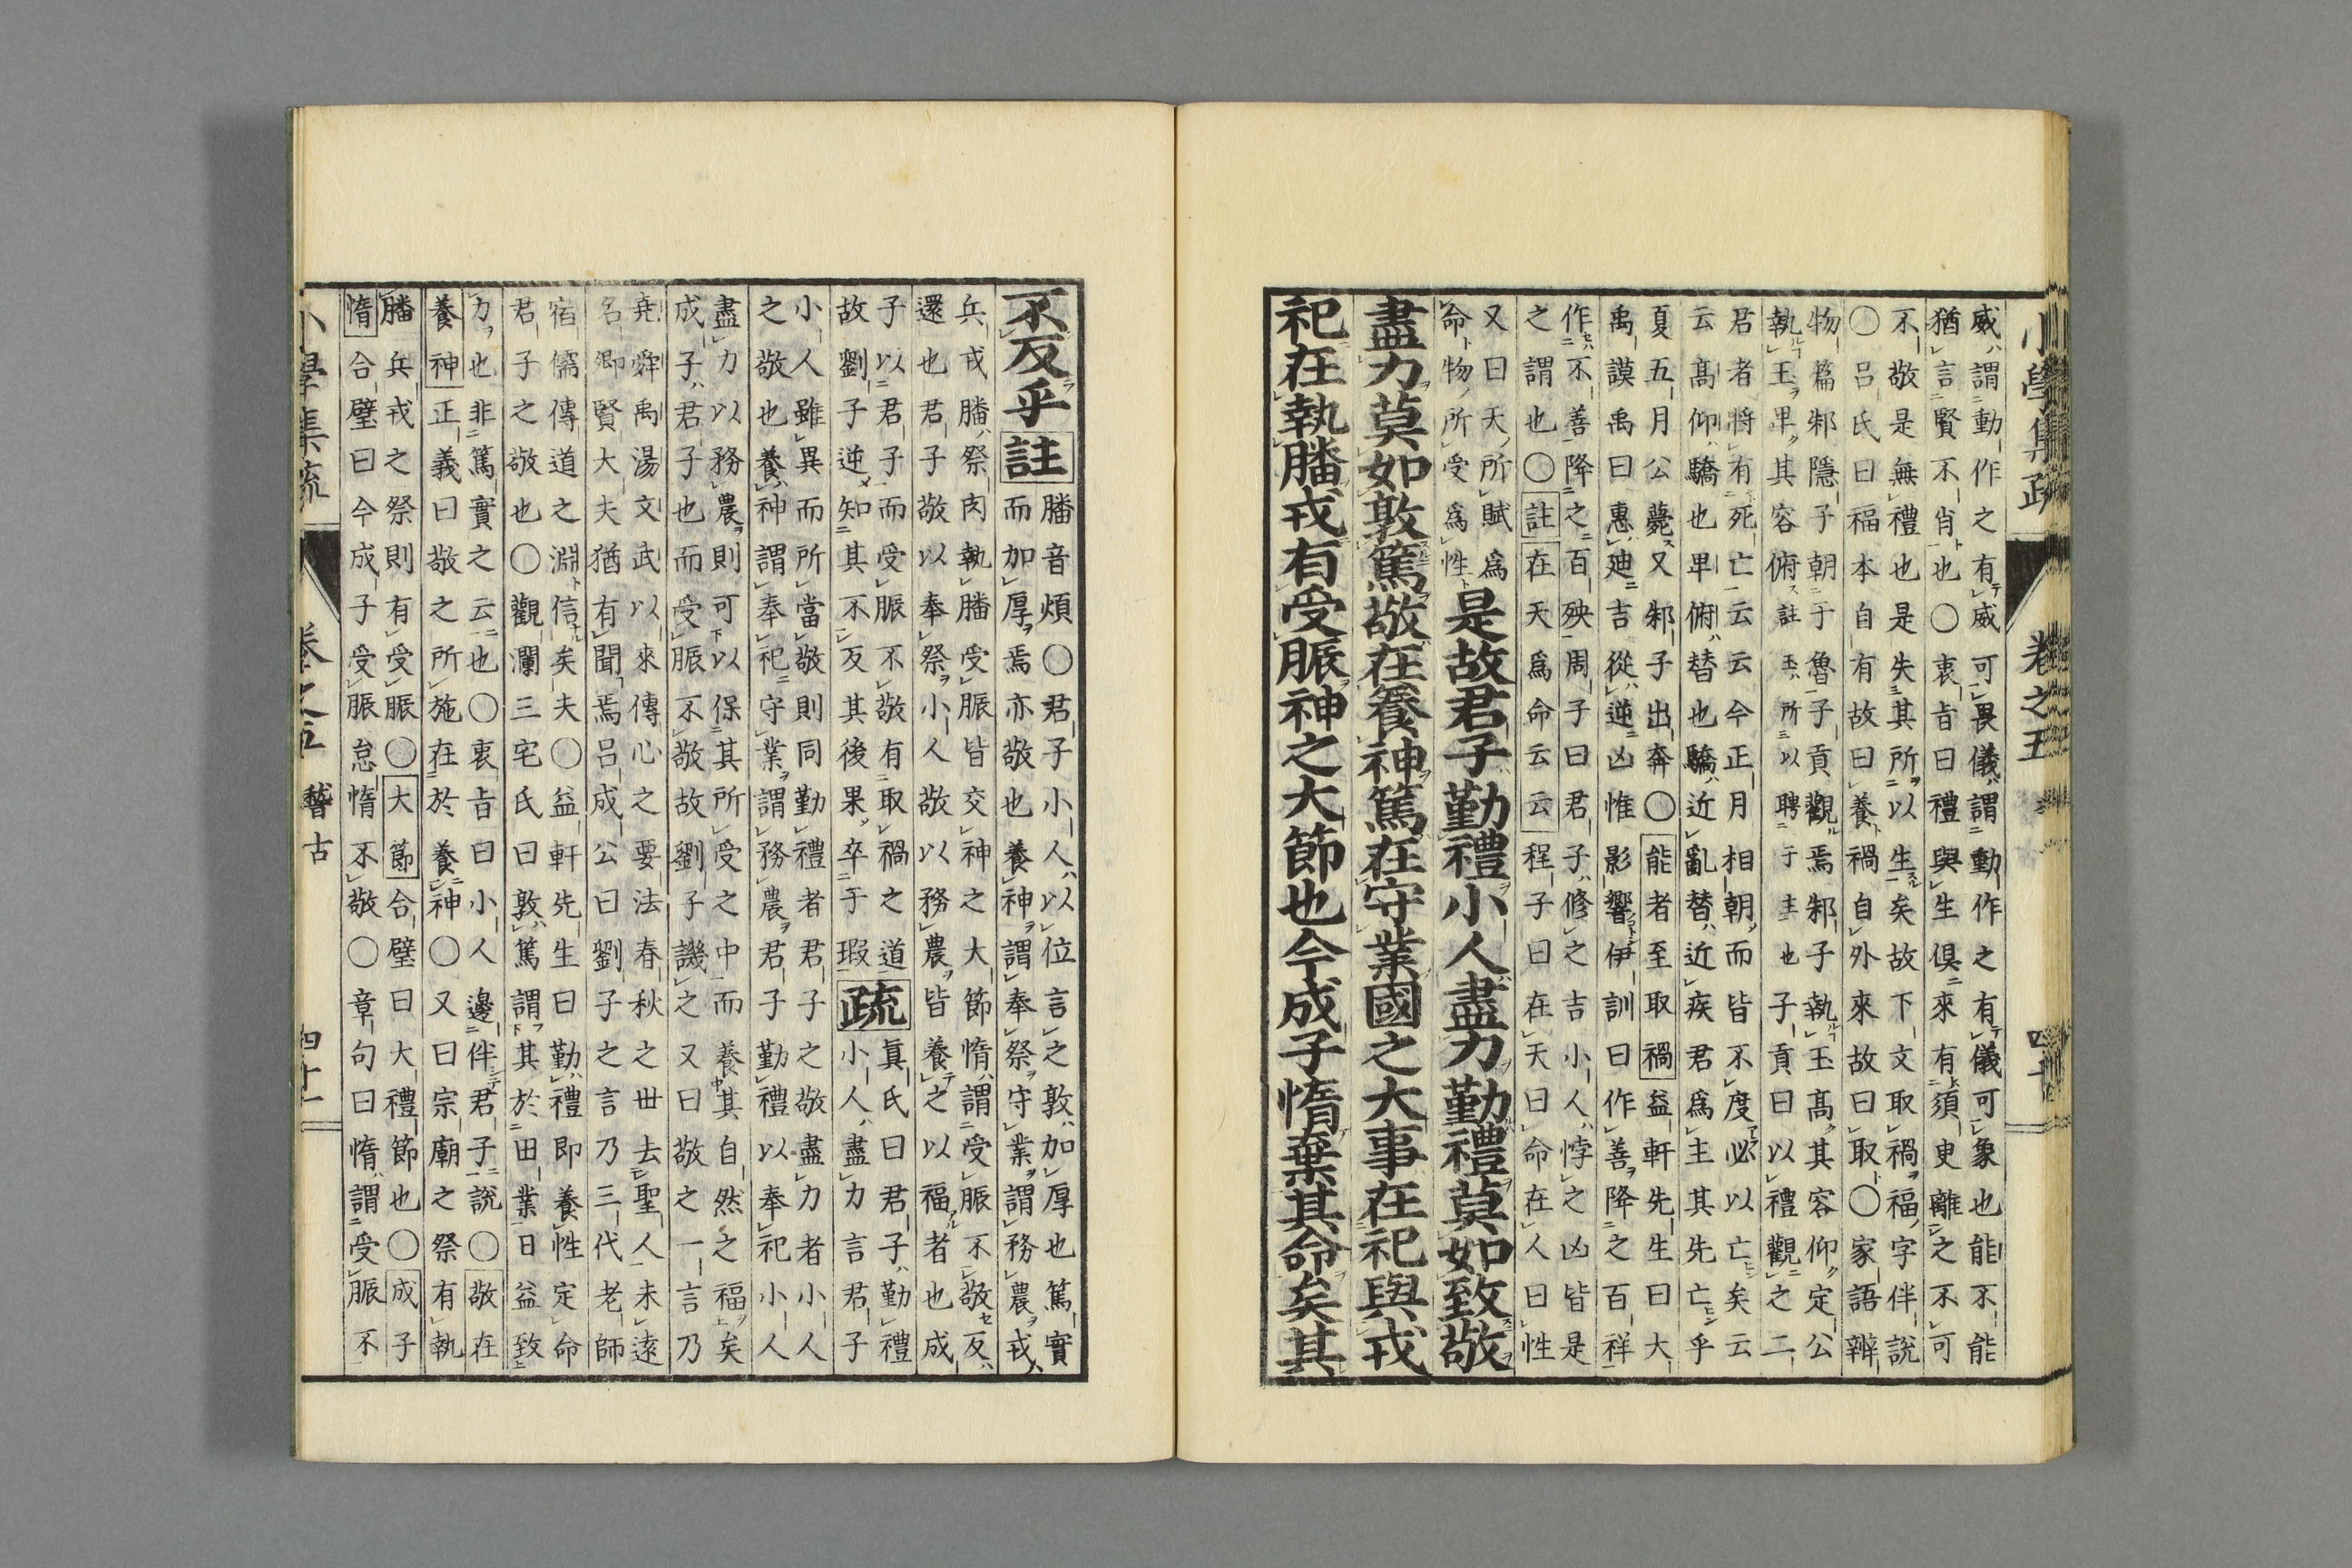 小學集疏　卷之五　四十
威謂動作之有威可畏儀謂動作之有儀可象也能不能
猶言賢不肖也〇衷旨曰禮與生俱來有須臾離之不可
不敬是無禮也是失其所以生矣故下文取禍福字伴說
〇呂氏曰福本自有故曰養禍自外來故曰取〇家語辯
物篇邾隱子朝于魯子貢觀焉邾子執玉髙其容仰定公
執玉卑其容俯註玉所以聘于主也子貢曰以禮觀之二
君者將有死亡云云今正月相朝而皆不度必以亡矣云
云髙仰驕也卑俯替也驕近亂替近疾君爲主其先亡乎
夏五月公薨又邾子出奔〇能者至取禍益軒先生曰大
禹謨禹曰惠廸吉從逆凶惟影響伊訓曰作善降之百祥
作不善降之百殃周子曰君子修之吉小人悖之凶皆是
之謂也〇註在天爲命云云程子曰在天曰命在人曰性
又曰天所賦爲
命物所受爲性
是故君子勤禮小人盡力勤禮莫如致敬
盡力莫如敦篤敬在養神篤在守業國之大事在祀與戎
祀在執膰戎有受脤神之大節也今成子惰棄其命矣其
不反乎註
膰音煩〇君子小人以位言之敦加厚也篤實
而加厚焉亦敬也養神謂奉祭守業謂務農戎
兵戎膰祭肉執膰受脤皆交神之大節惰謂受脤不敬反
還也君子敬以奉祭小人敬以務農皆養之以福者也成
子以君子而受脤不敬有取禍之道眞氏曰君子勤禮
故劉子逆知其不反其後果卒于瑕疏小人盡力言君子
小人雖異而所當敬則同勤禮者君子之敬盡力者小人
之敬也養神謂奉祀守業謂務農君子勤禮以奉祀小人
盡力以務農則可以保其所受之中而養其自然之福矣
成子君子也而受脤不敬故劉子譏之又曰敬之一言乃
堯舜禹湯文武以來傳心之要法春秋之世去聖人未遠
名卿賢大夫猶有聞焉呂成公曰劉子之言乃三代老師
宿儒傳道之淵信矣夫〇益軒先生曰勤禮即養性定命
君子之敬也〇觀瀾三宅氏曰敦篤謂其於田業日益致
力也非篤實之云也〇衷旨曰小人邊伴君子說〇敬在
養神正義曰敬之所施在於養神〇又曰宗廟之祭有執
膰兵戎之祭則有受脤〇大節合璧曰大禮節也〇成子
惰合璧曰今成子受脤怠惰不敬〇章句曰惰謂受脤不
小學集疏　卷之五　稽古　四十一